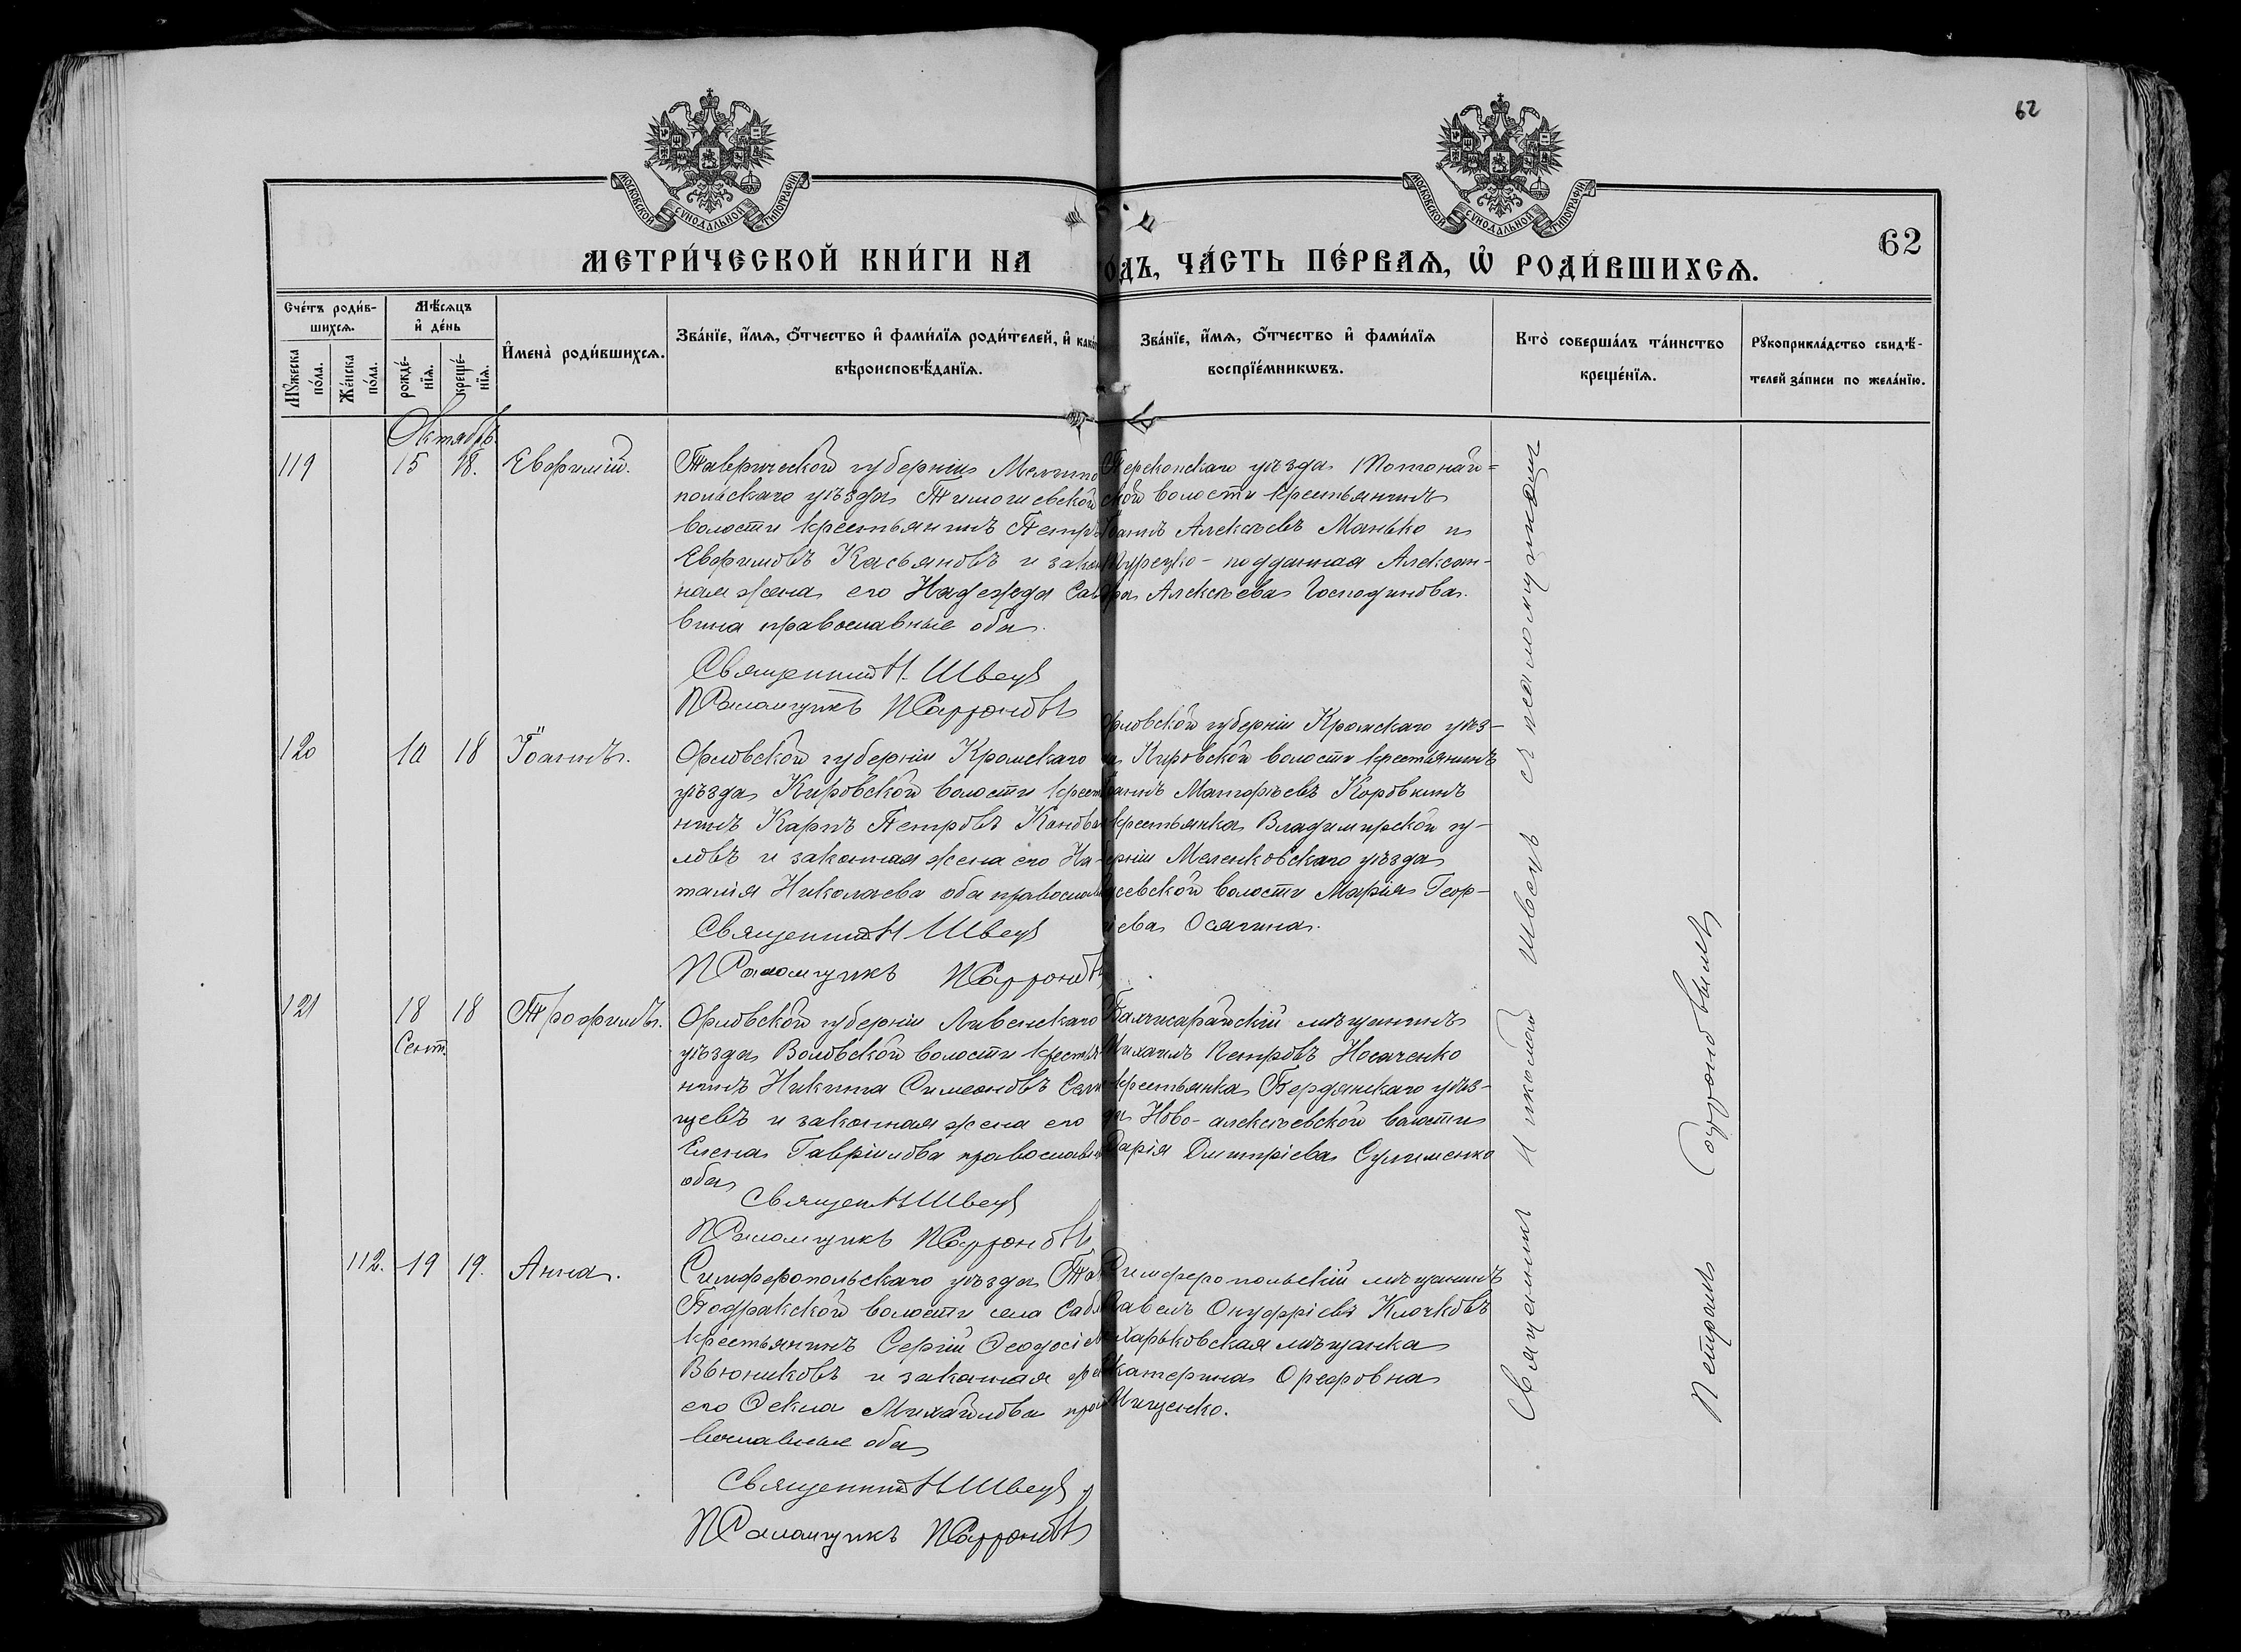 62
МОСКОВСКОЙ СѴНОДАЛЬНОЙ ТИПОГРАФІИ
МОСКОВСКОЙ СѴНОДАЛЬНОЙ ТИПОГРАФІИ
62
МЕТРИ́ЧЕСКОЙ КНИ́ГИ НА
О́ДЪ, ЧА́СТЬ ПЕ́РВАѦ, Ѡ҆ РОДИ́ВШИХСѦ.
Сче́тъ роди́в-
шихсѧ.
Мѣ́сѧцъ
и҆ де́нь
Мꙋ́жеска
по́ла.
Же́нска
по́ла.
рожде́-
нїѧ.
креще́-
нїѧ.
И҆мена̀ роди́вшихсѧ.
Зва́нїе, и҆́мѧ, ѻ҆́тчество и҆ фами́лїѧ роди́телей, и҆ како́
вѣроисповѣ́данїѧ.
Зва́нїе, и҆́мѧ, ѻ҆́тчество и҆ фами́лїѧ
воспрїе́мникѡвъ.
Кто̀ соверша́лъ та́инство
креще́нїѧ.
Рꙋкоприкла́дство свидѣ́-
телей за́писи по жела́нїю.
Октябрь
119
15
18.
Евфимій.
Таврической губерніи Мелито
польскаго уѣзда Тимошевской
волости крестьянинъ Петръ
Евфимовъ Касьяновъ и закон
ная жена его Надежда Сав
вина православные оба.
Священник Н. Швецъ
Псаломщикъ П Софроновъ
Перекопскаго уѣзда
ской волости крестьянинъ
Іоаннъ Алексѣевъ Манько и
Турецко-подданная Алексан-
дра Алексѣева Господинова.
120
10
18
Іоаннъ.
Орловской губерніи Кромскаго
уѣзда Кировской волости крест
нинъ Карпъ Петровъ
ловъ и законная жена его На-
талія Николаева оба православ
Священник Н Швецъ
Псаломщикъ П Софроновъ
Орловской губерніи Кромскаго уѣз-
да Кировской волости крестьянинъ
Іоаннъ Матѳѣевъ Коровкинъ
крестьянка Владимирской гу-
ерніи Меленковскаго уѣзда
севской волости Марія Геор-
іева Осягина.
121
18
Сент.
18
Трофимъ.
Орловской губерніи Ливенскаго
уѣзда Воловской волости крестья
нинъ Никита Симеоновъ Сели
щевъ и законная жена его
Елена Гавріилова православн
оба
Священ Н Швецъ
Псаломщикъ П Софроновъ
Бахчисарайскій мѣщанинъ
Михаилъ Петровъ Носаченко
крестьянка Бердянскаго уѣз-
да Ново-алексѣевской волости
Дарія Димитріева Сулименко
112.
19
19.
Анна.
Симферопольскаго уѣзда Та
Подгракской волости села Сабл
крестьянинъ Сергій Ѳеодосіев
Вьюниковъ и законная же
его Ѳекла Михайлова пра
вославные оба
Священник Н Швецъ
Псаломщикъ П Софроновъ
Симферопольскій мѣщанинъ
Павелъ Онуфріевъ Клочковъ
Харьковская мѣщанка
Екатерина Орефовна
Мищенко.
Священникъ Николай Швецъ и псаломщикъ
Петръ Софроновъ